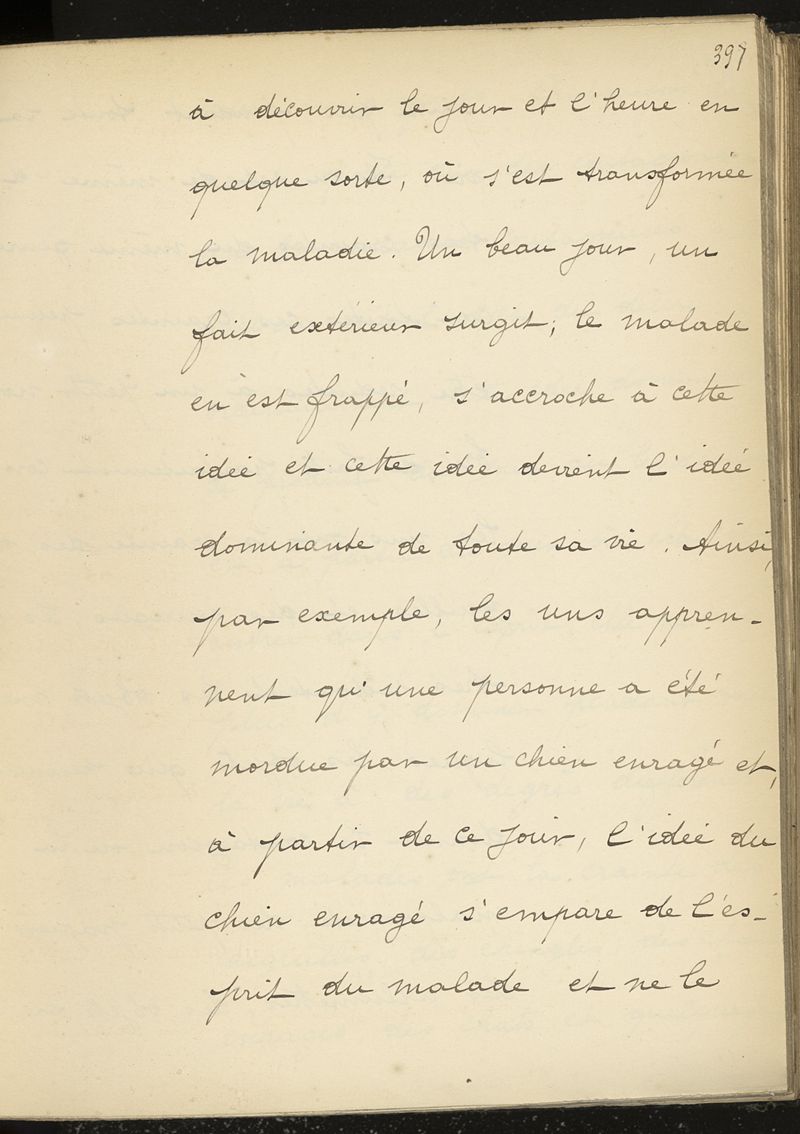 397
à découvrir le jour et l'heure en
quelque sorte, où s'est transformée
la maladie. Un beau jour, un
fait extérieur surgit; le malade
en est frappé, s'accroche à cette
idée et cette idée devient l'idée
dominante de toute sa vie. Ainsi,
par exemple, les uns appren-
nent qu'une personne a été
mordue par un chien enragé et,
à partir de ce jour, l'idée du
chien enragé s'empare de l'es-
prit du malade et ne le